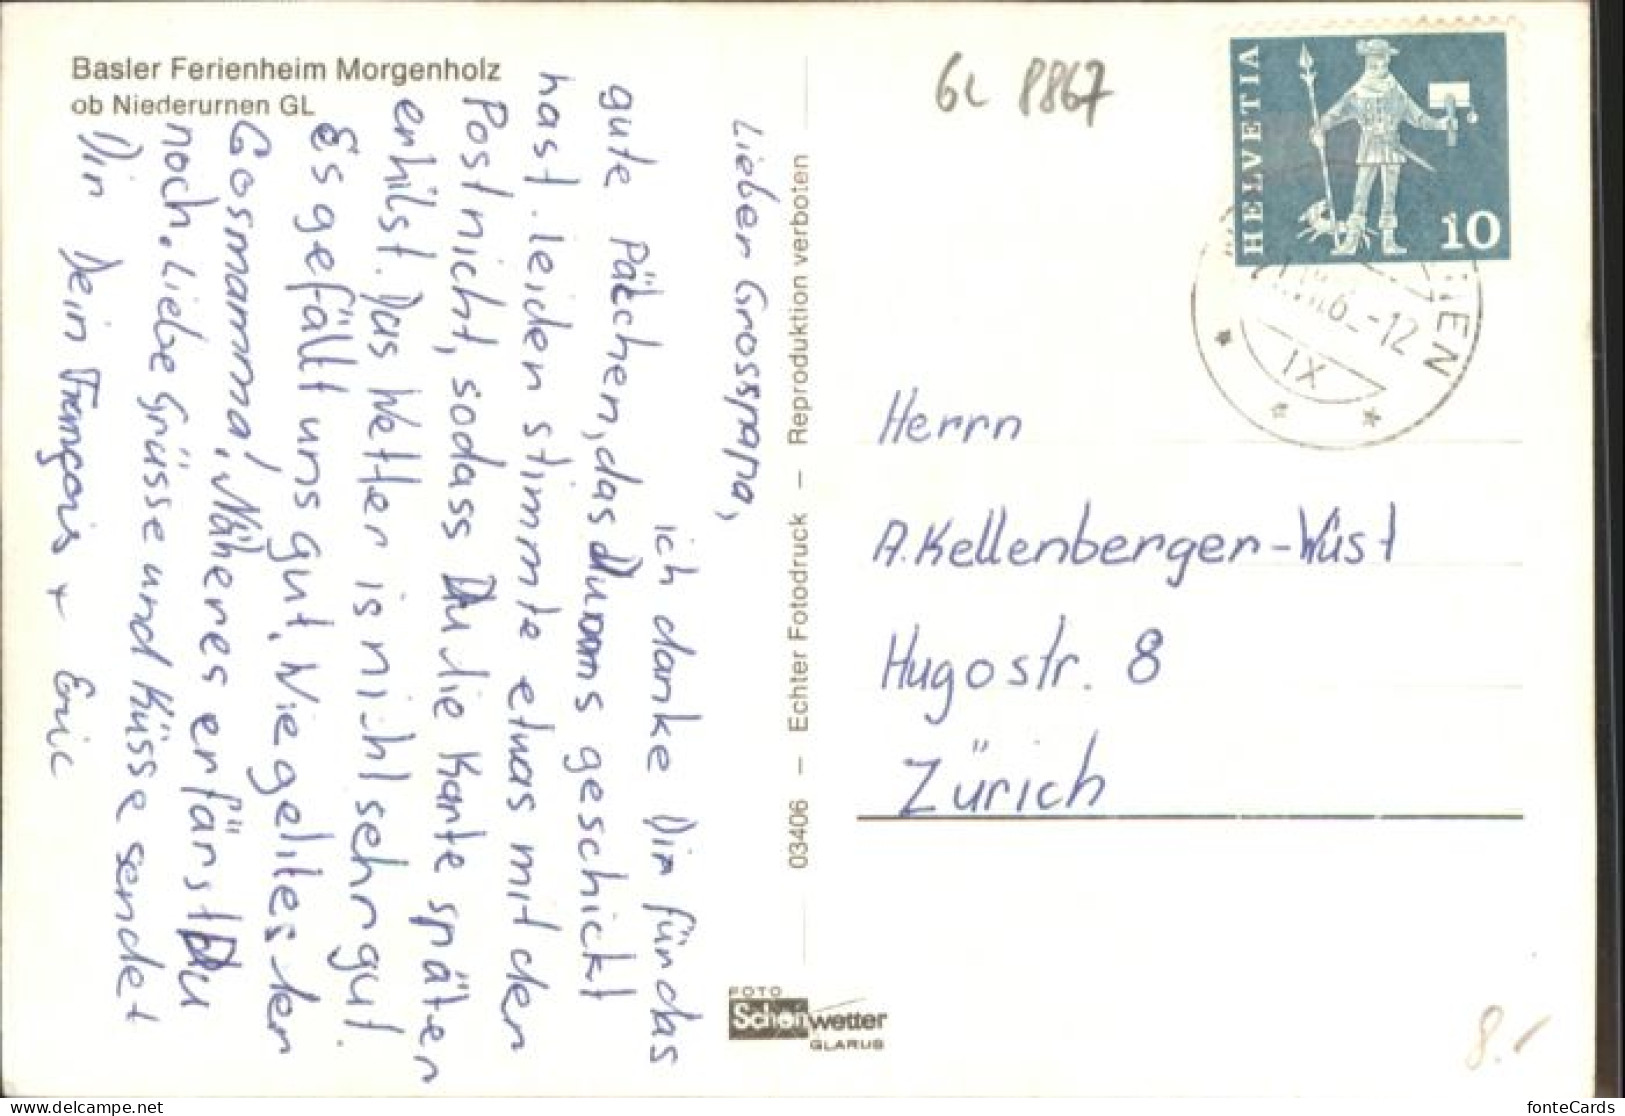 Basler Ferienheim Morgenholz
ob Niederurnen GL
GL 8867
HELVETIA
10
IEN
-12
IX
Lieber Grosspapa,
ich danke Dir für das
gute Pätchen, das Du uns geschickt
hast. leiden stimmte etwas mit der
Post nicht, sodass Du die Karte später
erhilst. Das Wetter is nicht sehr gut.
Es gefällt uns gut. Wie geht es der
Gosmamma! Näheres erfärst Du
noch. Liebe Grüsse und Küsse sendet
Dir Dein François + Eric
03406 — Echter Fotodruck — Reproduktion verboten
Herrn
A. Kellenberger-Wüst
Hugostr. 8
Zürich
FOTO
Schönwetter
GLARUS
8.-
delcampe.net
fonteCards